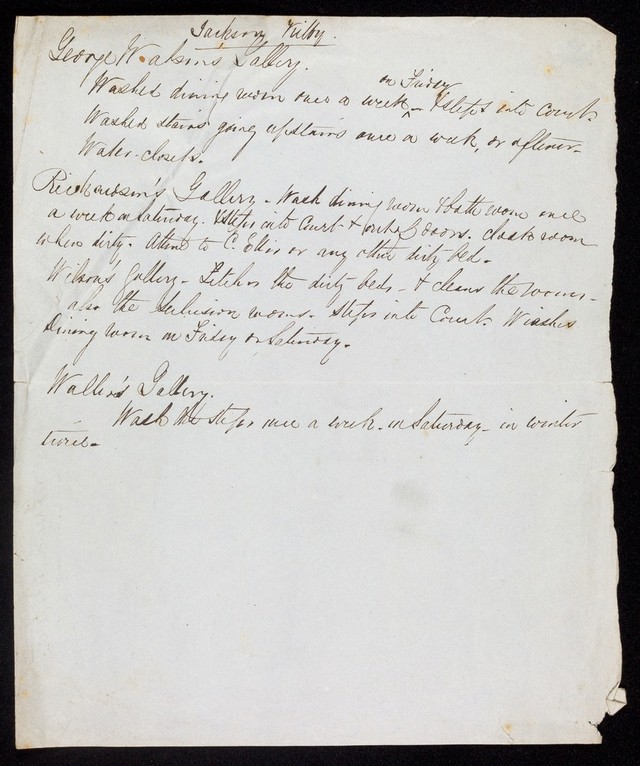 Jackson Kilby.
George Watson's Gallery.
on Friday
Washed dining room once a week - & steps into Court.
Washed stairs going upstairs once a week, or oftener.
Water-closets.
Richardson's Gallery - Wash dining room & bath room once
a week on Saturday. & steps into Court & out of doors. cloak room
when dirty. Attend to C. Ellis or any other dirty bed.
Wilson's Gallery - Fetches the dirty beds - & cleans the rooms -
also the seclusion rooms. Steps into Court. Washes
Dining room on Friday or Saturday.
Waller's Gallery.
Wash the steps once a week - on Saturday - in winter
time -